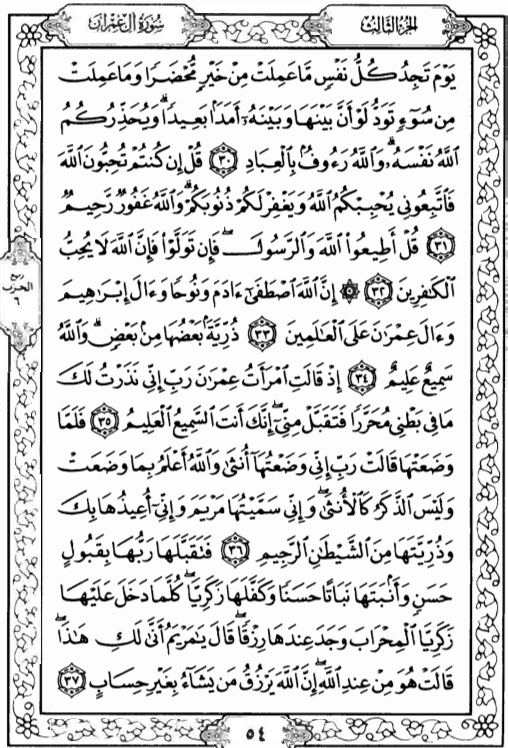 سُورَةُ آلِ عِمْرَان
الجُزْءُ الثَّالِثُ
يَوْمَ تَجِدُ كُلُّ نَفْسٍ مَّا عَمِلَتْ مِنْ خَيْرٍ مُّحْضَرًا وَمَا عَمِلَتْ
مِن سُوٓءٍ تَوَدُّ لَوْ أَنَّ بَيْنَهَا وَبَيْنَهُۥٓ أَمَدَۢا بَعِيدًا ۗ وَيُحَذِّرُكُمُ
ٱللَّهُ نَفْسَهُۥ ۗ وَٱللَّهُ رَءُوفُۢ بِٱلْعِبَادِ ٣٠ قُلْ إِن كُنتُمْ تُحِبُّونَ ٱللَّهَ
فَٱتَّبِعُونِى يُحْبِبْكُمُ ٱللَّهُ وَيَغْفِرْ لَكُمْ ذُنُوبَكُمْ ۗ وَٱللَّهُ غَفُورٌ رَّحِيمٌ
٣١ قُلْ أَطِيعُوا۟ ٱللَّهَ وَٱلرَّسُولَ ۖ فَإِن تَوَلَّوْا۟ فَإِنَّ ٱللَّهَ لَا يُحِبُّ
ٱلْكَٰفِرِينَ ٣٢ ۞ إِنَّ ٱللَّهَ ٱصْطَفَىٰٓ ءَادَمَ وَنُوحًا وَءَالَ إِبْرَٰهِيمَ
وَءَالَ عِمْرَٰنَ عَلَى ٱلْعَٰلَمِينَ ٣٣ ذُرِّيَّةَۢ بَعْضُهَا مِنۢ بَعْضٍ ۗ وَٱللَّهُ
سَمِيعٌ عَلِيمٌ ٣٤ إِذْ قَالَتِ ٱمْرَأَتُ عِمْرَٰنَ رَبِّ إِنِّى نَذَرْتُ لَكَ
مَا فِى بَطْنِى مُحَرَّرًا فَتَقَبَّلْ مِنِّىٓ ۖ إِنَّكَ أَنتَ ٱلسَّمِيعُ ٱلْعَلِيمُ ٣٥ فَلَمَّا
وَضَعَتْهَا قَالَتْ رَبِّ إِنِّى وَضَعْتُهَآ أُنثَىٰ وَٱللَّهُ أَعْلَمُ بِمَا وَضَعَتْ
وَلَيْسَ ٱلذَّكَرُ كَٱلْأُنثَىٰ ۖ وَإِنِّى سَمَّيْتُهَا مَرْيَمَ وَإِنِّىٓ أُعِيذُهَا بِكَ
وَذُرِّيَّتَهَا مِنَ ٱلشَّيْطَٰنِ ٱلرَّجِيمِ ٣٦ فَتَقَبَّلَهَا رَبُّهَا بِقَبُولٍ
حَسَنٍ وَأَنۢبَتَهَا نَبَاتًا حَسَنًا وَكَفَّلَهَا زَكَرِيَّا ۖ كُلَّمَا دَخَلَ عَلَيْهَا
زَكَرِيَّا ٱلْمِحْرَابَ وَجَدَ عِندَهَا رِزْقًا ۖ قَالَ يَٰمَرْيَمُ أَنَّىٰ لَكِ هَٰذَا ۖ
قَالَتْ هُوَ مِنْ عِندِ ٱللَّهِ ۖ إِنَّ ٱللَّهَ يَرْزُقُ مَن يَشَآءُ بِغَيْرِ حِسَابٍ ٣٧
ربع
الحزب
٦
٥٤